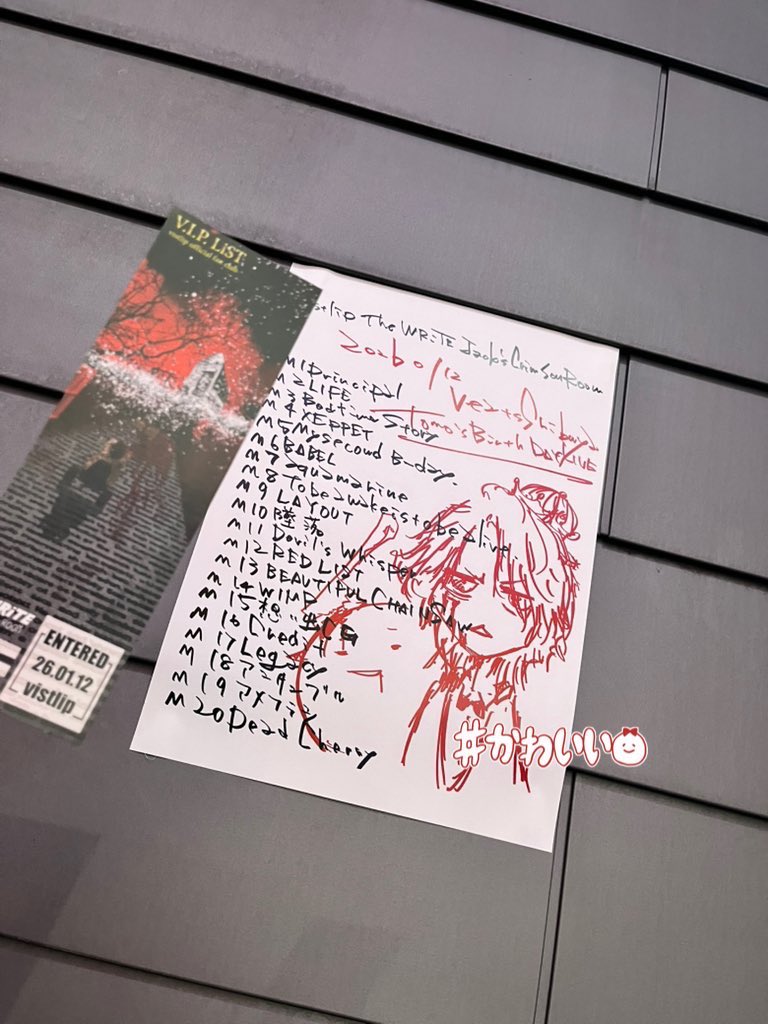 V.I.P. LiST
vistlip official fan club
ENTERED
26.01.12
vistlip
tlip The WRiTE Jack's Crimson Room
2026 01/12
Veats Shibuya
Tomo's Birth Day LIVE
M1 Principal
M2 LIFE
M3 Bedtime Story
M4 XEPPET
M5 My second B-day.
M6 BABEL
M7 aquamarine
M8 To be awake is to be alive
M9 LAYOUT
M10 墜落
M11 Devil's Whisper
M12 RED LIST
M13 BEAUTIFUL CHAINSAW
M14 WIMP
M15 想い出CG
M16 Credit
M17 Legacy
M18 アンサンブル
M19 アメフラシ
M20 Dead Cherry
#かわいい